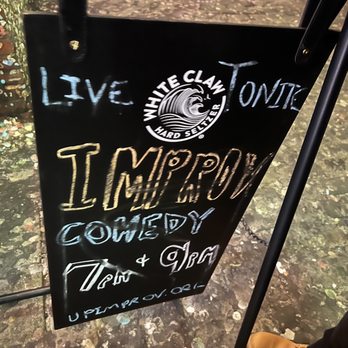 LIVE TONITE
WHITE CLAW
HARD SELTZER
IMPROV
COMEDY
7PM & 9PM
UPIMPROV.ORG